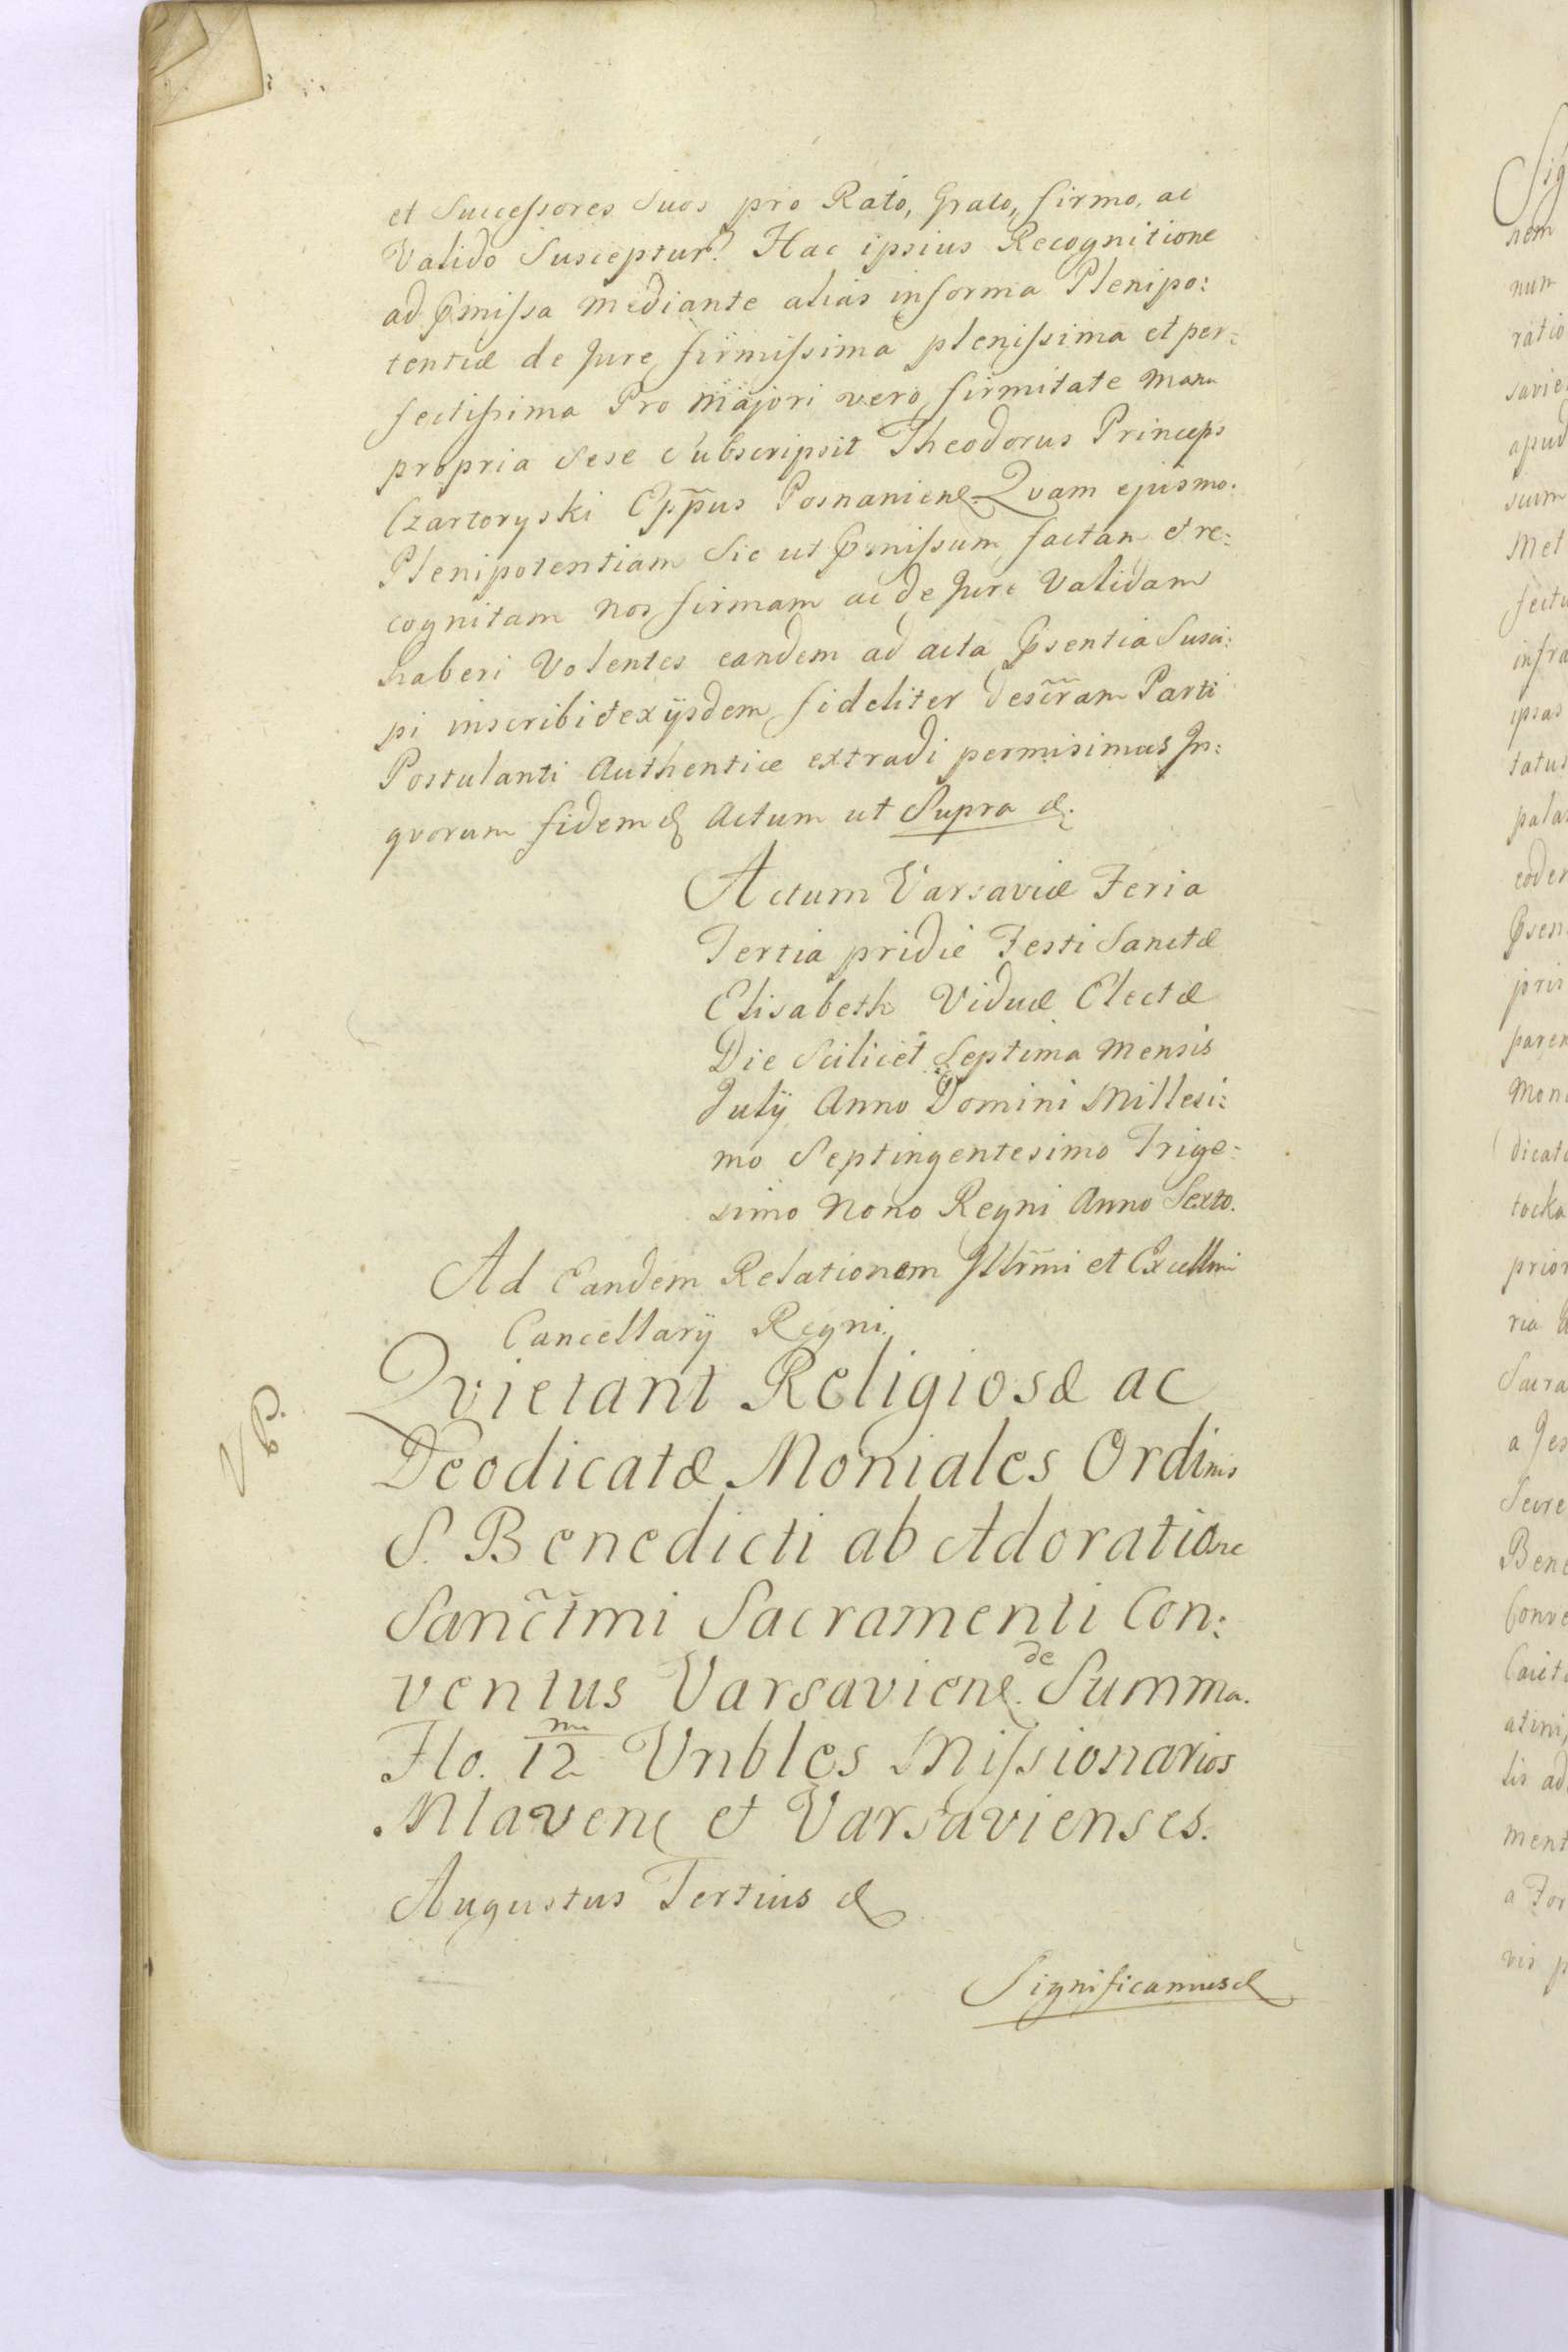 et Succeſsores Suos pro Rato, Grato, firmo, ac
Valido Susceptur. Hac ipsius Recognitione
ad Pmiſsa mediante alias in forma Plenipo:
tentiæ de Jure firmiſsima pleniſsima et per:
fectiſsima Pro Majori vero firmitate Manu
propria Sese Subscripsit Theodorus Princeps
Czartoryski Epp̃us Posnaniens. Qvam ejusmo.
Plenipotentiam Sic ut Pmiſsum factam et re:
cognitam nos firmam ac de Jure Validam
haberi Volentes eandem ad acta Psentia Susci:
pi inscribi et ex ijsdem fideliter descr̃am Parti
Postulanti Authentice extradi permisimus In:
qvorum fidem & Actum ut Supra &.
Actum Varsaviæ Feria
Tertia pridie Festi Sanctæ
Elisabeth Viduæ Electæ
Die Scilicet Septima Mensis
Julij Anno Domini Millesi:
mo Septingentesimo Trige:
simo Nono Regni Anno Sexto.
Ad Eandem Relationem Illr̃mi et Excellmi
Cancellarij Regni.
Qvietant Religiosæ ac
Deodicatæ Moniales Ordinis
S. Benedicti ab Adoratione
Sanct̃mi Sacramenti Con:
ventus Varsaviens. de Summa.
Flo. 12 m Vnbles Miſsionarios
Mlavens et Varsavienses.
Augustus Tertius &
Significamus &